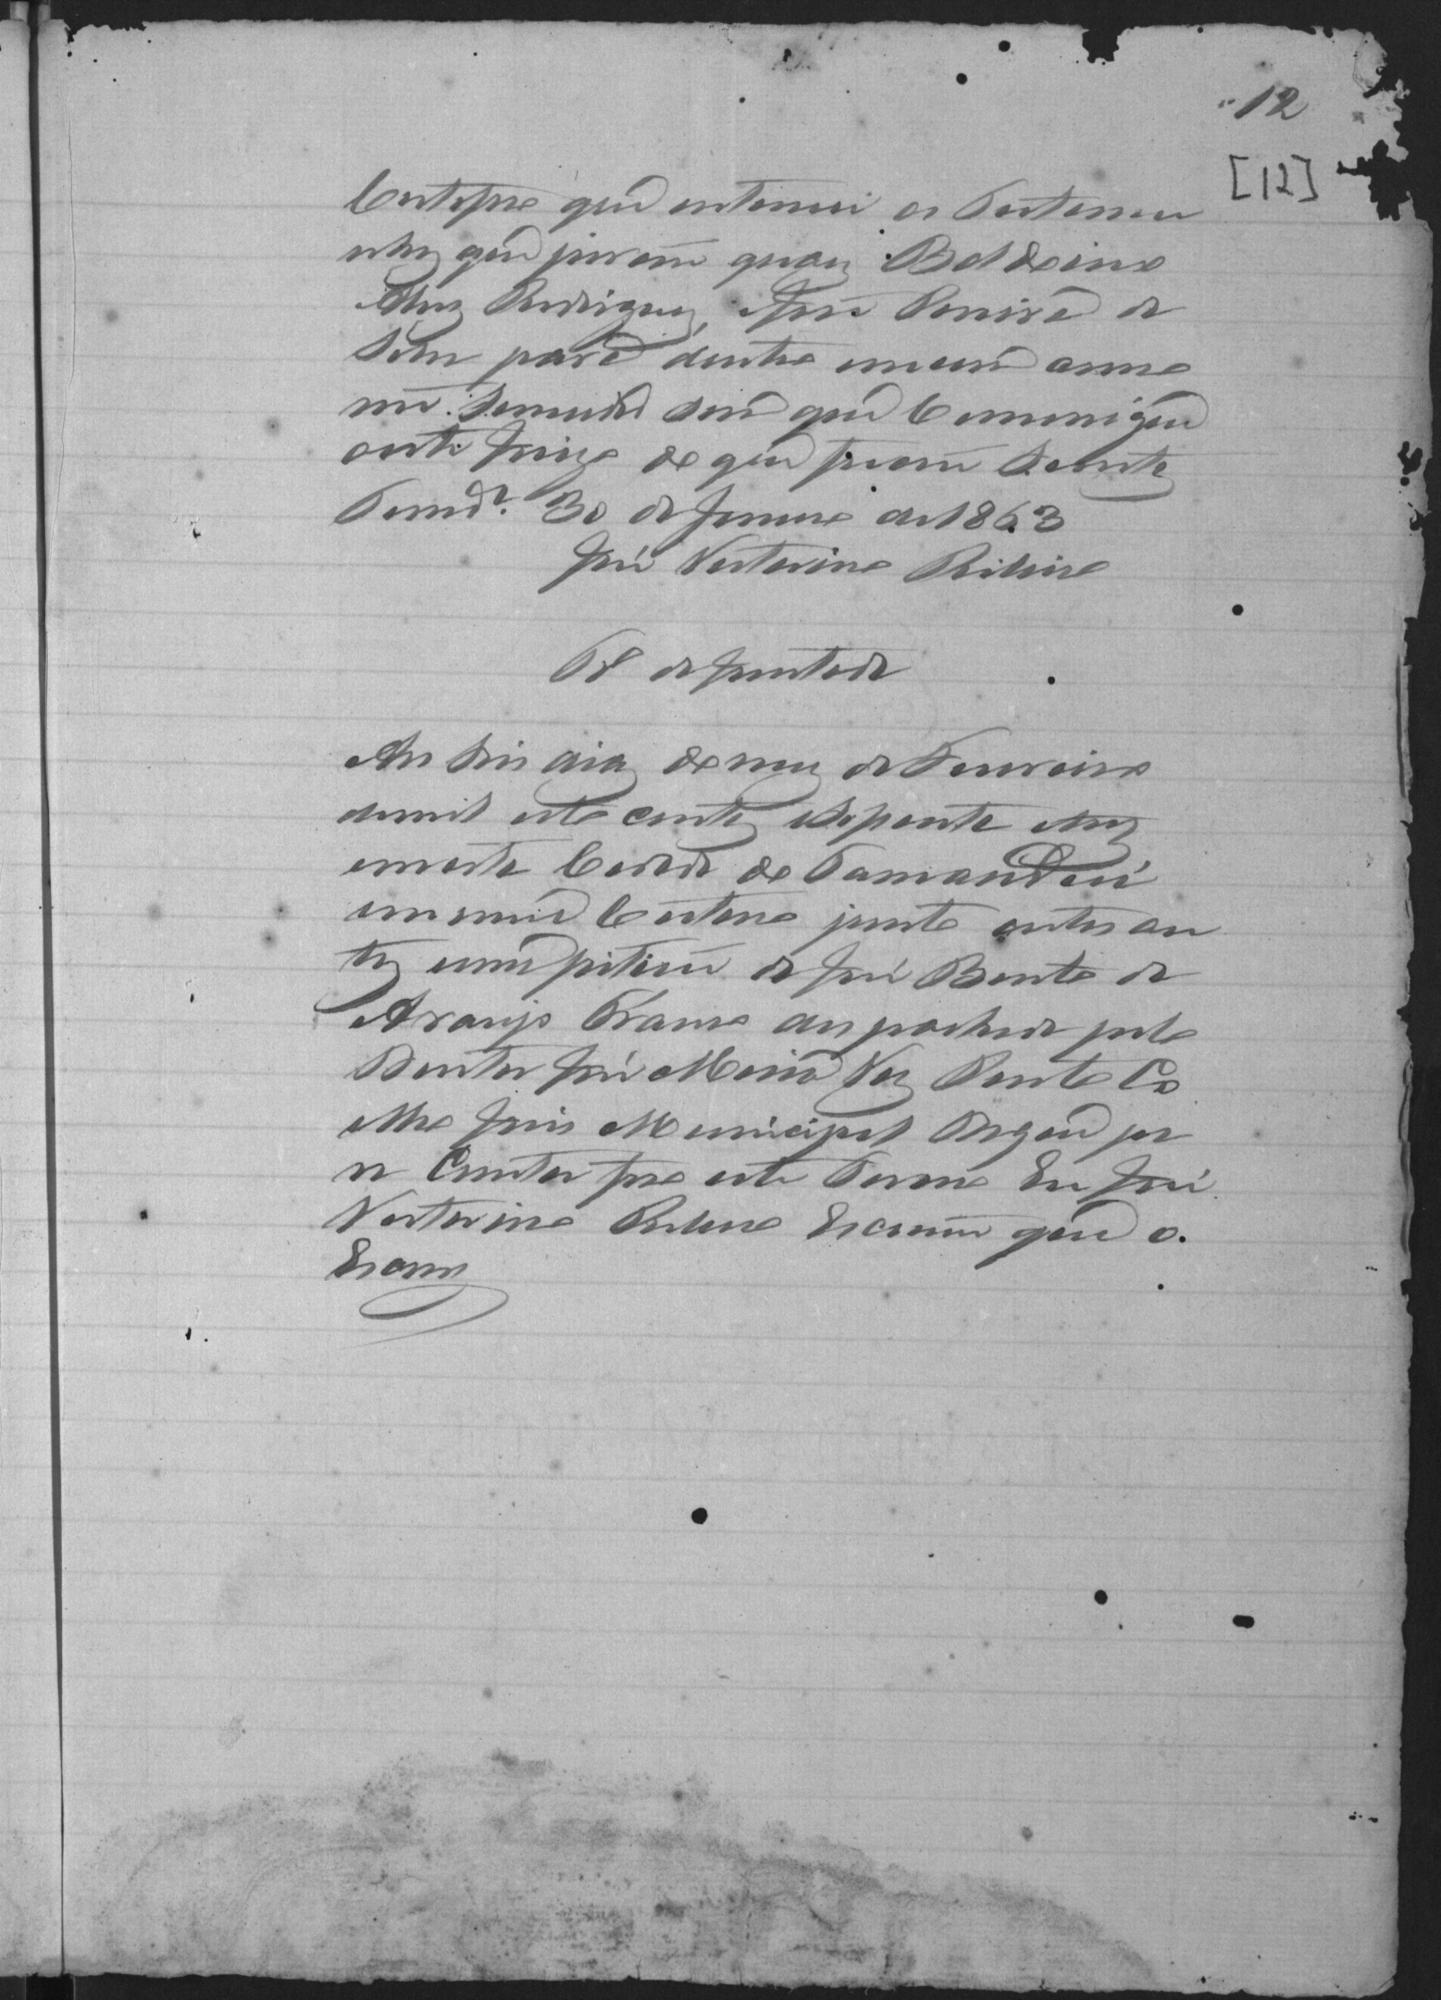 12
[12]
Certefico que entemei as Testemu
nhas que jurarão quaes Beldoino
Alves Rodrigues, José Pereira da
Silva para dentro um anno
não se mudar sem que Comunique
este Juizo do que ficarão sciente
Tamd.ª 30 de Janeiro de 1863
José Vesterino Ribeiro
T.º de Juntada
Aos seis dias do mez de Fevereiro
de mil oito centos sesenta e tres
em esta Cidade de Tamanduá
em meu Cartorio junto estes au
tos uma pitição de José Bento de
Araujo Framo despachada pelo
Doutor José Maria Vaz Pinto Co
elho Juiz Municipal do que pa
ra Constar faço este Termo Eu José
Vesterino Ribeiro Escrivão que o
Escrevi